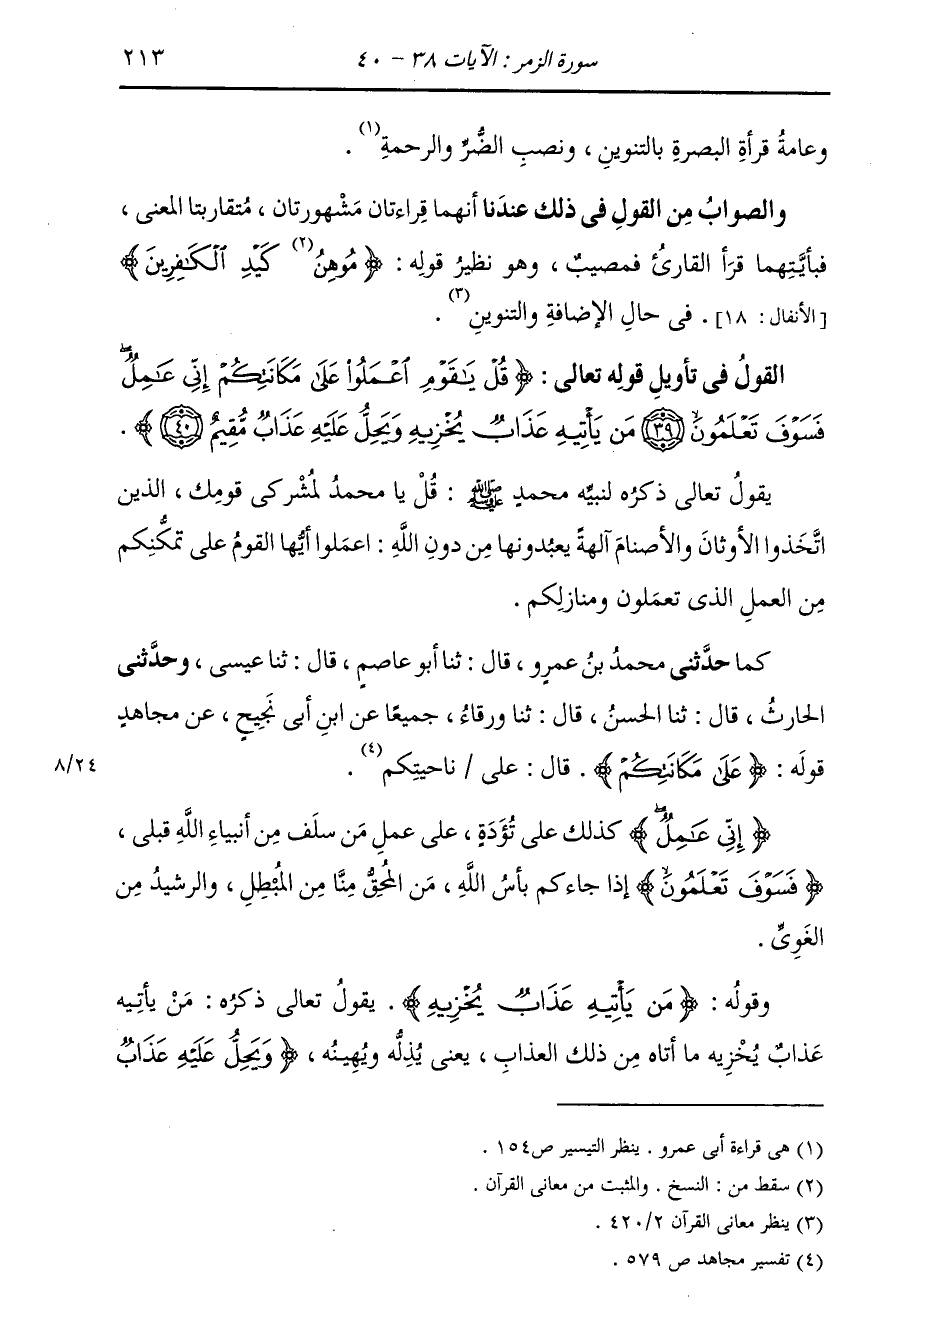 سورة الزمر : الآيات ٣٨ - ٤٠ ٢١٣
وعامةُ قرأةِ البصرةِ بالتنوينِ ، ونصبِ الضُّرِّ والرحمةِ(١) .
والصوابُ مِن القولِ فى ذلك عندَنا أنهما قِراءتان مَشْهورتان ، مُتقاربتا المعنى ،
فبأيَّتِهما قرَأ القارئُ فمصيبٌ ، وهو نظيرُ قولِه : ﴿ مُوهِنُ(٢) كَيْدِ ٱلْكَـٰفِرِينَ ﴾
[الأنفال : ١٨] . فى حالِ الإضافةِ والتنوينِ(٣) .
القولُ فى تأويلِ قولِه تعالى : ﴿ قُلْ يَـٰقَوْمِ ٱعْمَلُوا۟ عَلَىٰ مَكَانَتِكُمْ إِنِّى عَـٰمِلٌ ۖ
فَسَوْفَ تَعْلَمُونَ ۙ ﴿٣٩﴾ مَن يَأْتِيهِ عَذَابٌ يُخْزِيهِ وَيَحِلُّ عَلَيْهِ عَذَابٌ مُّقِيمٌ ﴿٤٠﴾ ﴾ .
يقولُ تعالى ذكرُه لنبيِّه محمدٍ ﷺ : قُلْ يا محمدُ لمُشْركى قومِك ، الذين
اتَّخَذوا الأوثانَ والأصنامَ آلهةً يعبُدونها مِن دونِ اللَّهِ : اعمَلوا أيُّها القومُ على تمكُّنِكم
مِن العملِ الذى تعمَلون ومنازلِكم .
كما حدَّثنى محمدُ بنُ عمرٍو ، قال : ثنا أبو عاصمٍ ، قال : ثنا عيسى ، وحدَّثنى
الحارثُ ، قال : ثنا الحسنُ ، قال : ثنا ورقاءُ ، جميعًا عن ابنِ أبى نَجيحٍ ، عن مجاهدٍ
قولَه : ﴿ عَلَىٰ مَكَانَتِكُمْ ﴾ . قال : على / ناحيتِكم(٤) . ٨/٢٤
﴿ إِنِّى عَـٰمِلٌ ۖ ﴾ كذلك على تُؤَدَةٍ ، على عملِ مَن سلَف مِن أنبياءِ اللَّهِ قبلى ،
﴿ فَسَوْفَ تَعْلَمُونَ ۙ ﴾ إذا جاءكم بأسُ اللَّهِ ، مَن المُحقُّ مِنَّا مِن المُبْطِلِ ، والرشيدُ مِن
الغَوِىِّ .
وقولُه : ﴿ مَن يَأْتِيهِ عَذَابٌ يُخْزِيهِ ﴾ . يقولُ تعالى ذكرُه : مَنْ يأتيه
عَذابٌ يُخْزِيه ما أتاه مِن ذلك العذابِ ، يعنى يُذِلُّه ويُهِينُه ، ﴿ وَيَحِلُّ عَلَيْهِ عَذَابٌ
(١) هى قراءة أبى عمرو . ينظر التيسير ص١٥٤ .
(٢) سقط من : النسخ . والمثبت من معانى القرآن .
(٣) ينظر معانى القرآن ٤٢٠/٢ .
(٤) تفسير مجاهد ص ٥٧٩ .